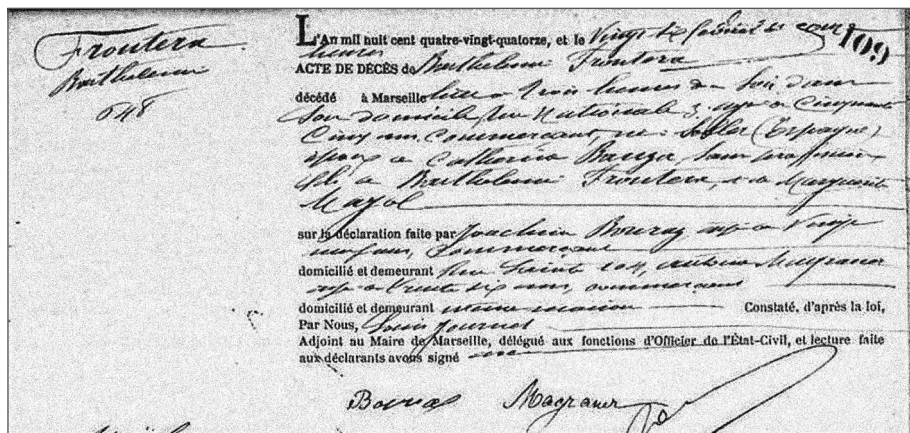 Frontera
Barthélemi
648
109
L'An mil huit cent quatre-vingt-quatorze, et le Vingt six février à onze
heures
ACTE DE DÉCÈS de Barthélemi Frontera
décédé à Marseille à trois heures du soir dans
son domicile rue Nationale 3, âgé de Cinquante
Cinq ans, Commerçant, né à Soller (Espagne)
époux de Catherine Bauza, sans profession
fils de Barthélemi Frontera, et de Marguerite
Mayol
sur la déclaration faite par Joachim Bouvas âgé de Vingt
neuf ans, Commerçant
domicilié et demeurant Rue Sainte 104, Magraner
âgé de Trente six ans, commerçant
domicilié et demeurant même maison Constaté, d'après la loi,
Par Nous, Louis Journet
Adjoint au Maire de Marseille, délégué aux fonctions d'Officier de l'État-Civil, et lecture faite
aux déclarants avons signé
Magraner